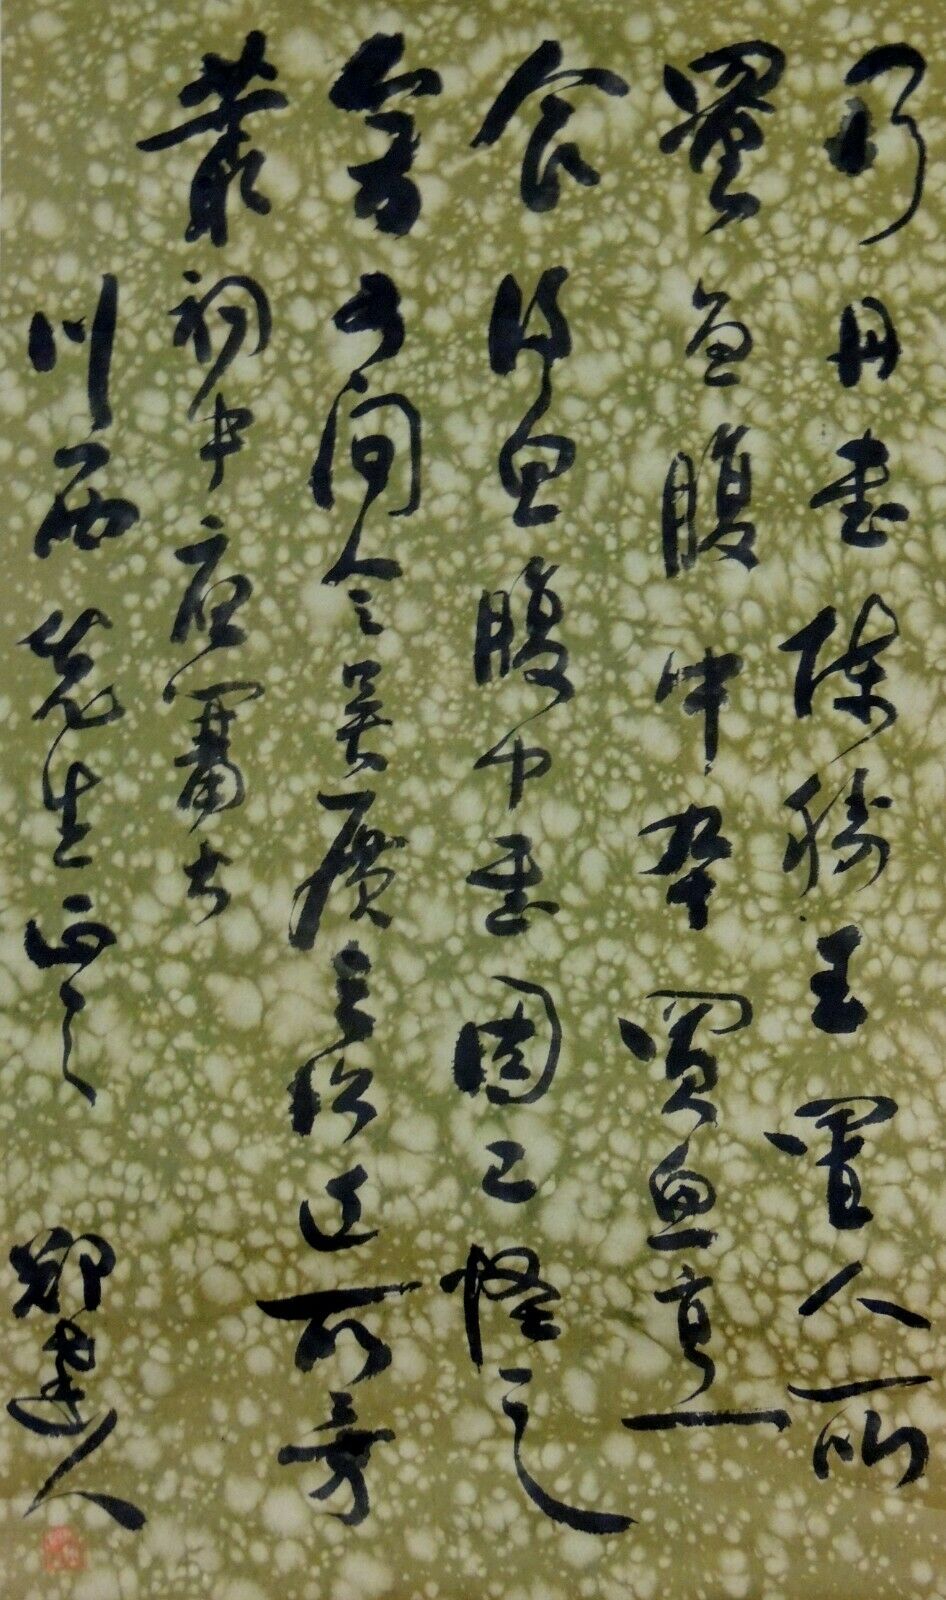 乃丹書陳勝王置人所
罾魚腹中卒買魚亨
食得魚腹中書固已怪之
矣又間令吳廣之次近所旁
叢祠中夜篝火
川西先生正之 鄭達人